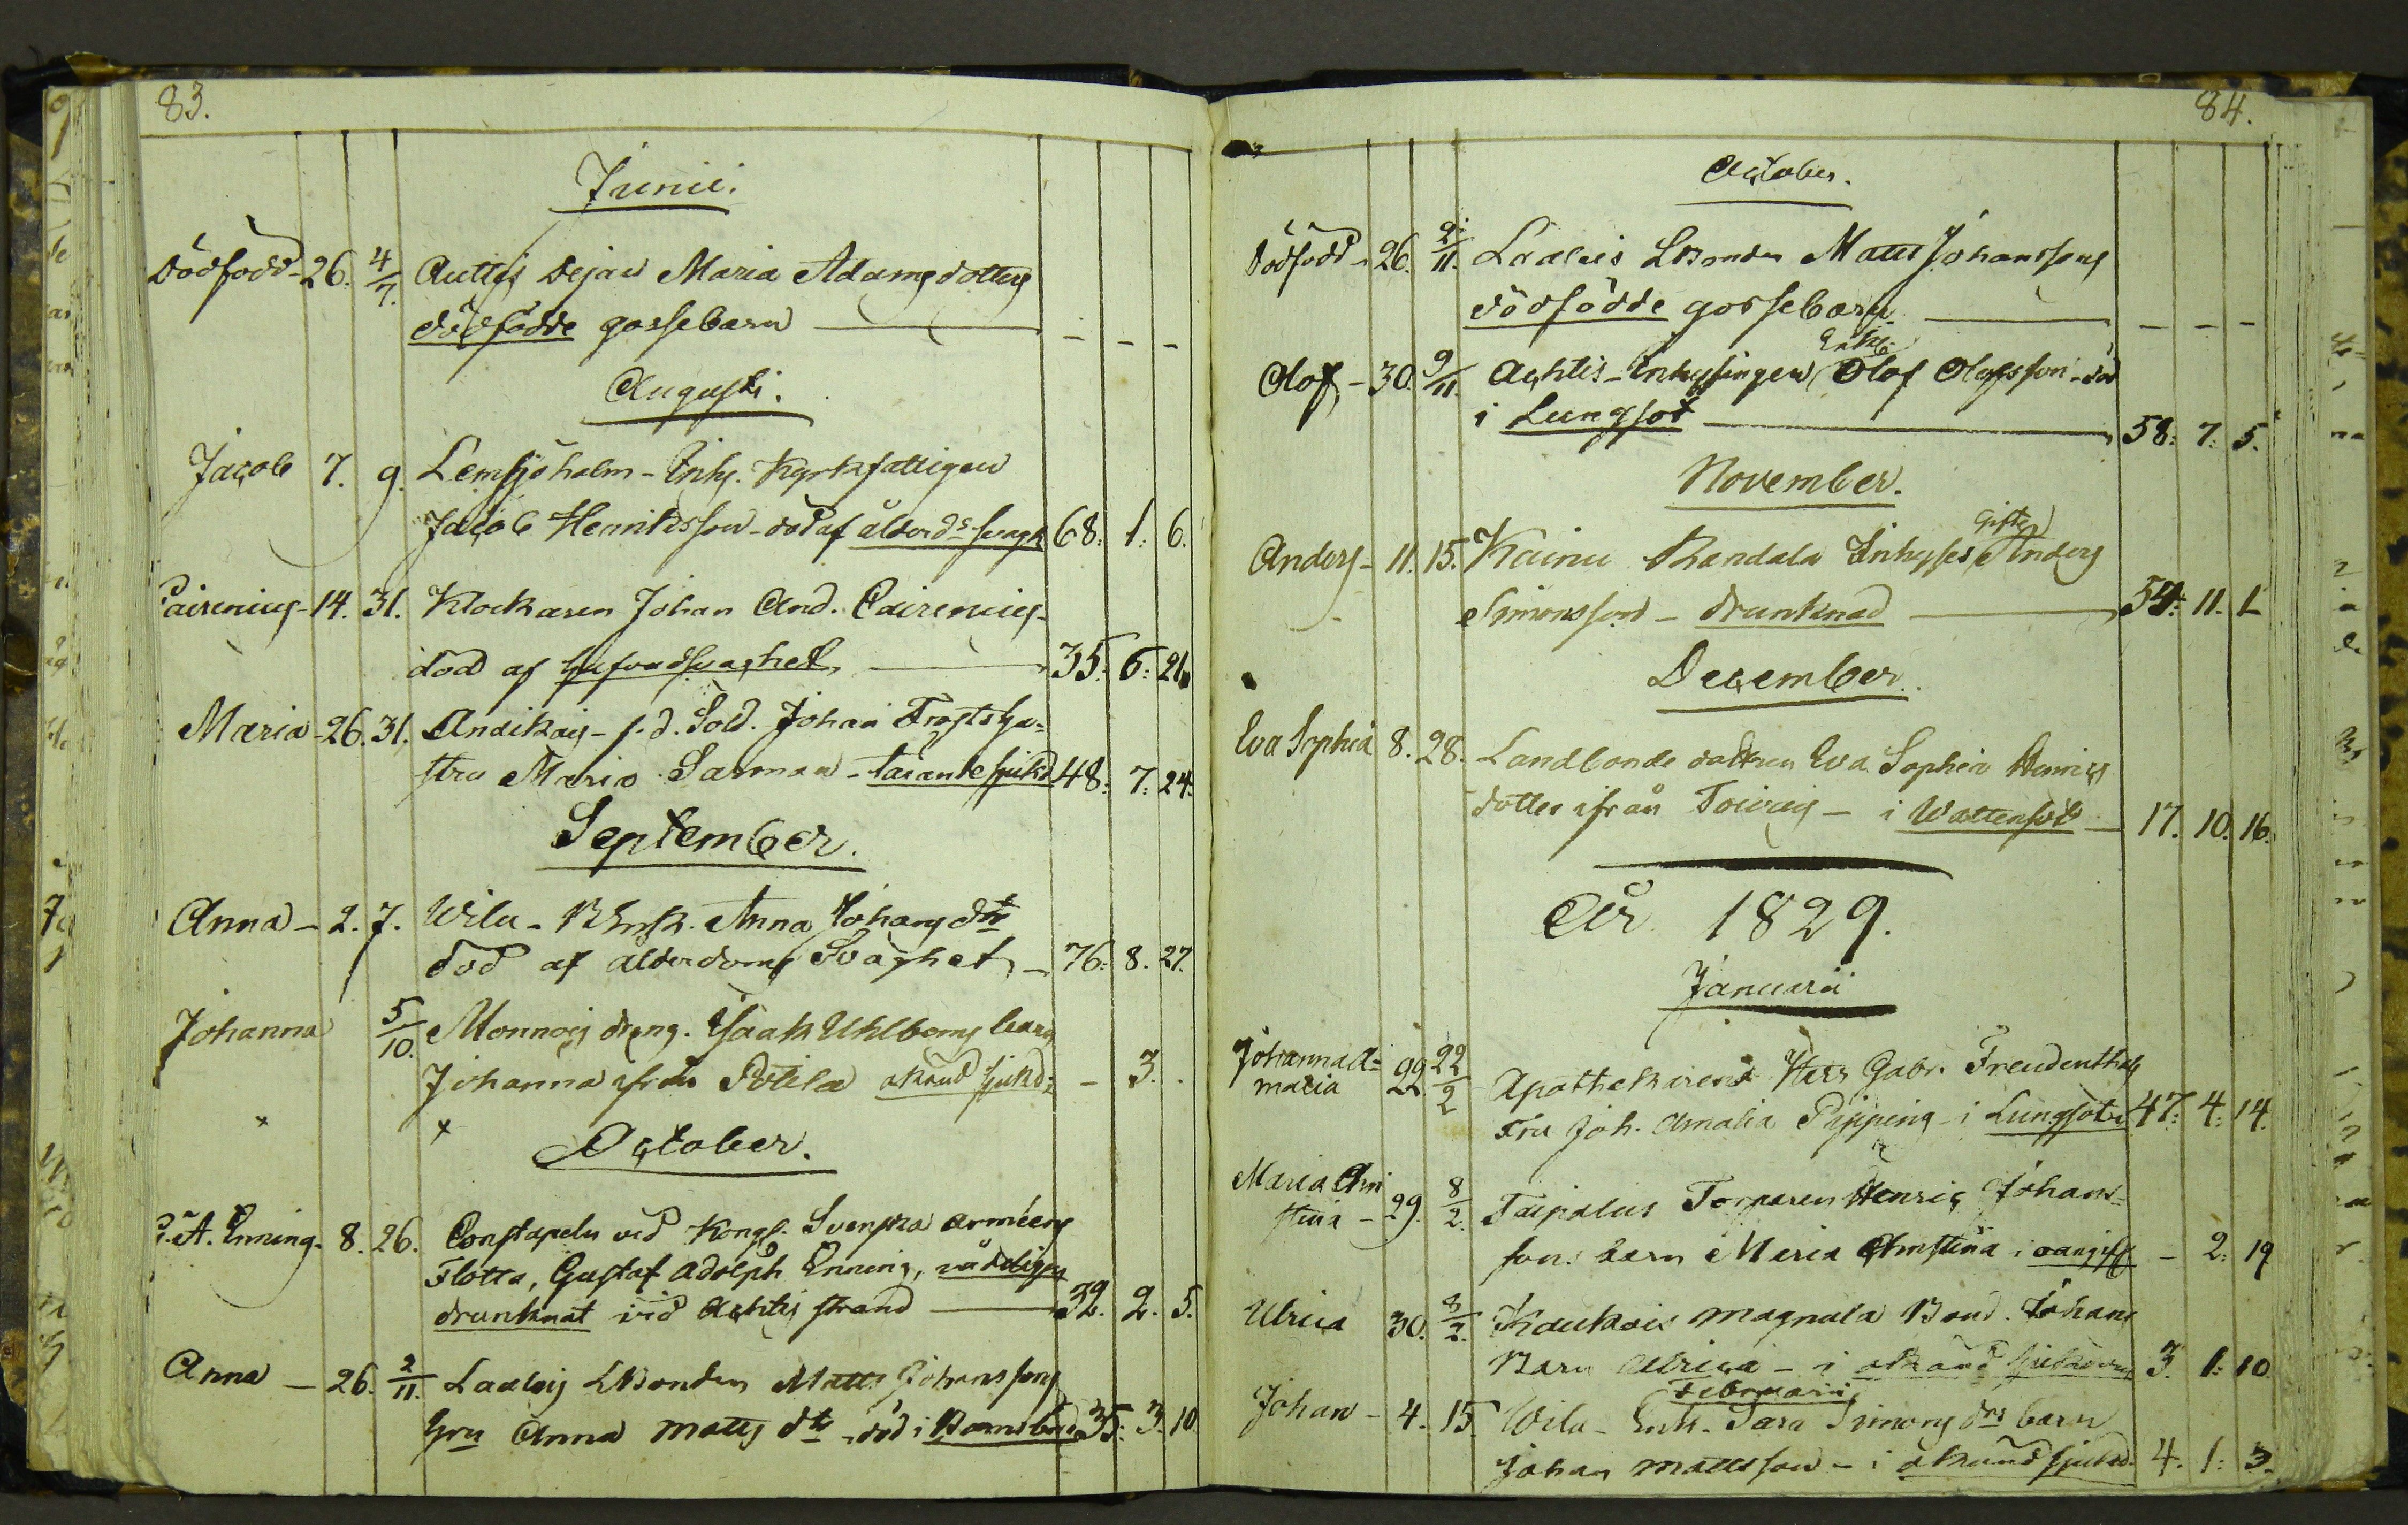 83.
Junii.
Dödfödd - 26. 4/7. Auttis Dejan Maria Adamsdotters
dödfödde gossebarn - - -
Augusti.
Jacob 7. 9. Lemsjöholm - Inhs. Kyrkfattigen
Jacob Henriksson - död af ålderds-svagh 68: 1: 6.
Pairenius - 14. 31. Klockaren Johan And. Pairenius -
död af hufvudsvaghet, 35: 6: 21.
Maria - 26. 31. Andikais - f.d. Sold. Johan Frosts hu-
stru Maria Sarman - tärande sjukd 48: 7: 24.
September.
Anna - 2. 7. Wilu - BEnk. Anna Johansdtr
död af ålderdoms Svaghet - 76: 8. 27.
Johanna 5/10. Monnois dreng. Isaak Uhlboms barn
Johanna ifrån Potila okänd sjukd: - 3.
October.
G. A. Enning - 8. 26. Constapeln vid Kongl. Svenska arméens
Flotta, Gustaf Adolph Enning, våddligen
drunknat vid Achtis strand 32. 2. 5.
Anna - 26. 2/11. Laalois LBonden Matts Johanssons
hru Anna Matts dtr - död i Barnsbörd 35: 3. 10
84.
October.
Dödfödd - 26. 2/11. Laalois LBonden Matts Johanssons
dödfödde gossebarn - - -
Olof - 30. 9/11. Achtis - Inhysingen Enkl. Olof Olofsson - död
i Lungsot 58: 7: 5.
November.
Anders - 11. 15. Kainu Randala Inhyses Gifte Anders
Simonsson - drunknad 54: 11. 1
December.
Eva Sophia 8. 28. Landbonde dottren Eva Sophia Henrics
dotter ifrån Toivois - i Wattensot - 17. 10. 16.
År 1829.
Januarii
Johanna A-
malia 22. 22/2 Apothekarens Herr Gabr. Freudenthals
Fru Joh. Amalia Pipping - i Lungsot 47: 4: 14.
Maria Chri
stina - 29. 8/2. Taipalus Torparen Henric Johans-
sons barn Maria Christina i - 2: 19
Ulrica 30. 8/2. Kaukois Magnula Bond. Johans
Barn Ulrica - i okänd sjukdom 3. 1: 10.
Februarii
Johan - 4. 15. Wilu - Enk. Sara Simons drs barn
Johan Mattsson - i okänd sjukd. 4. 1: 3.